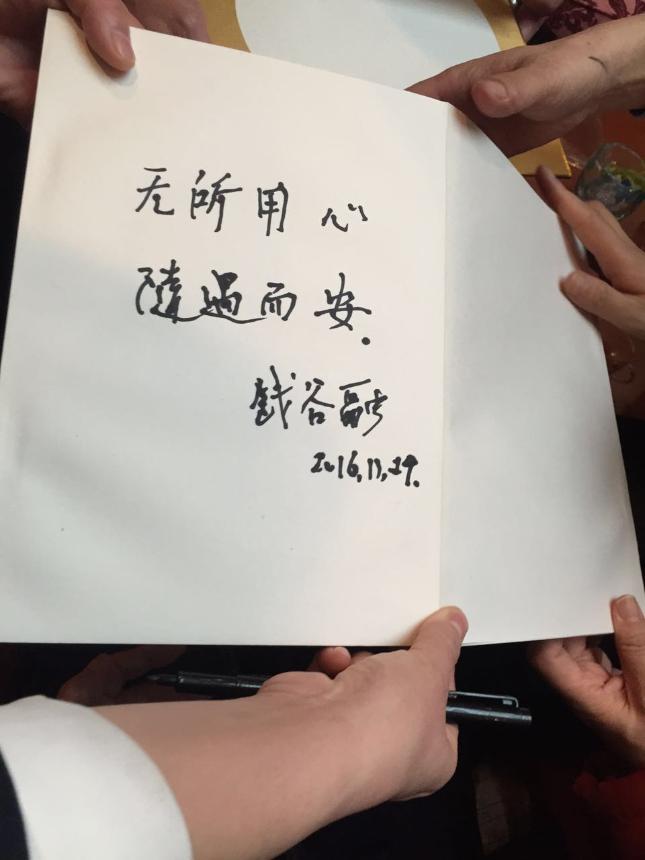 无所用心
隨遇而安.
钱谷融
2016.11.29.